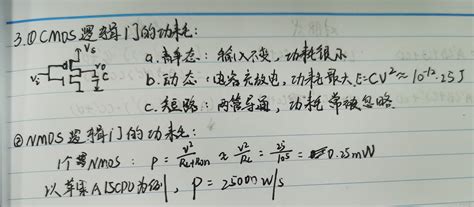 3.① CMOS逻辑门的功耗:
a. 静态: 输入不变, 功耗很小
b. 动态: 电容充放电, 功耗最大, E=CV²≈10⁻¹².25J
c. 短路: 两管导通, 功耗常被忽略.
Vs
Vi
Vo
C
② NMOS逻辑门的功耗:
1个 NMOS: P = V²/(RL+Ron) ≈ V²/RL = 25/10⁵ = 0.25mW
以苹果A15CPU为例, P = 25000W/s